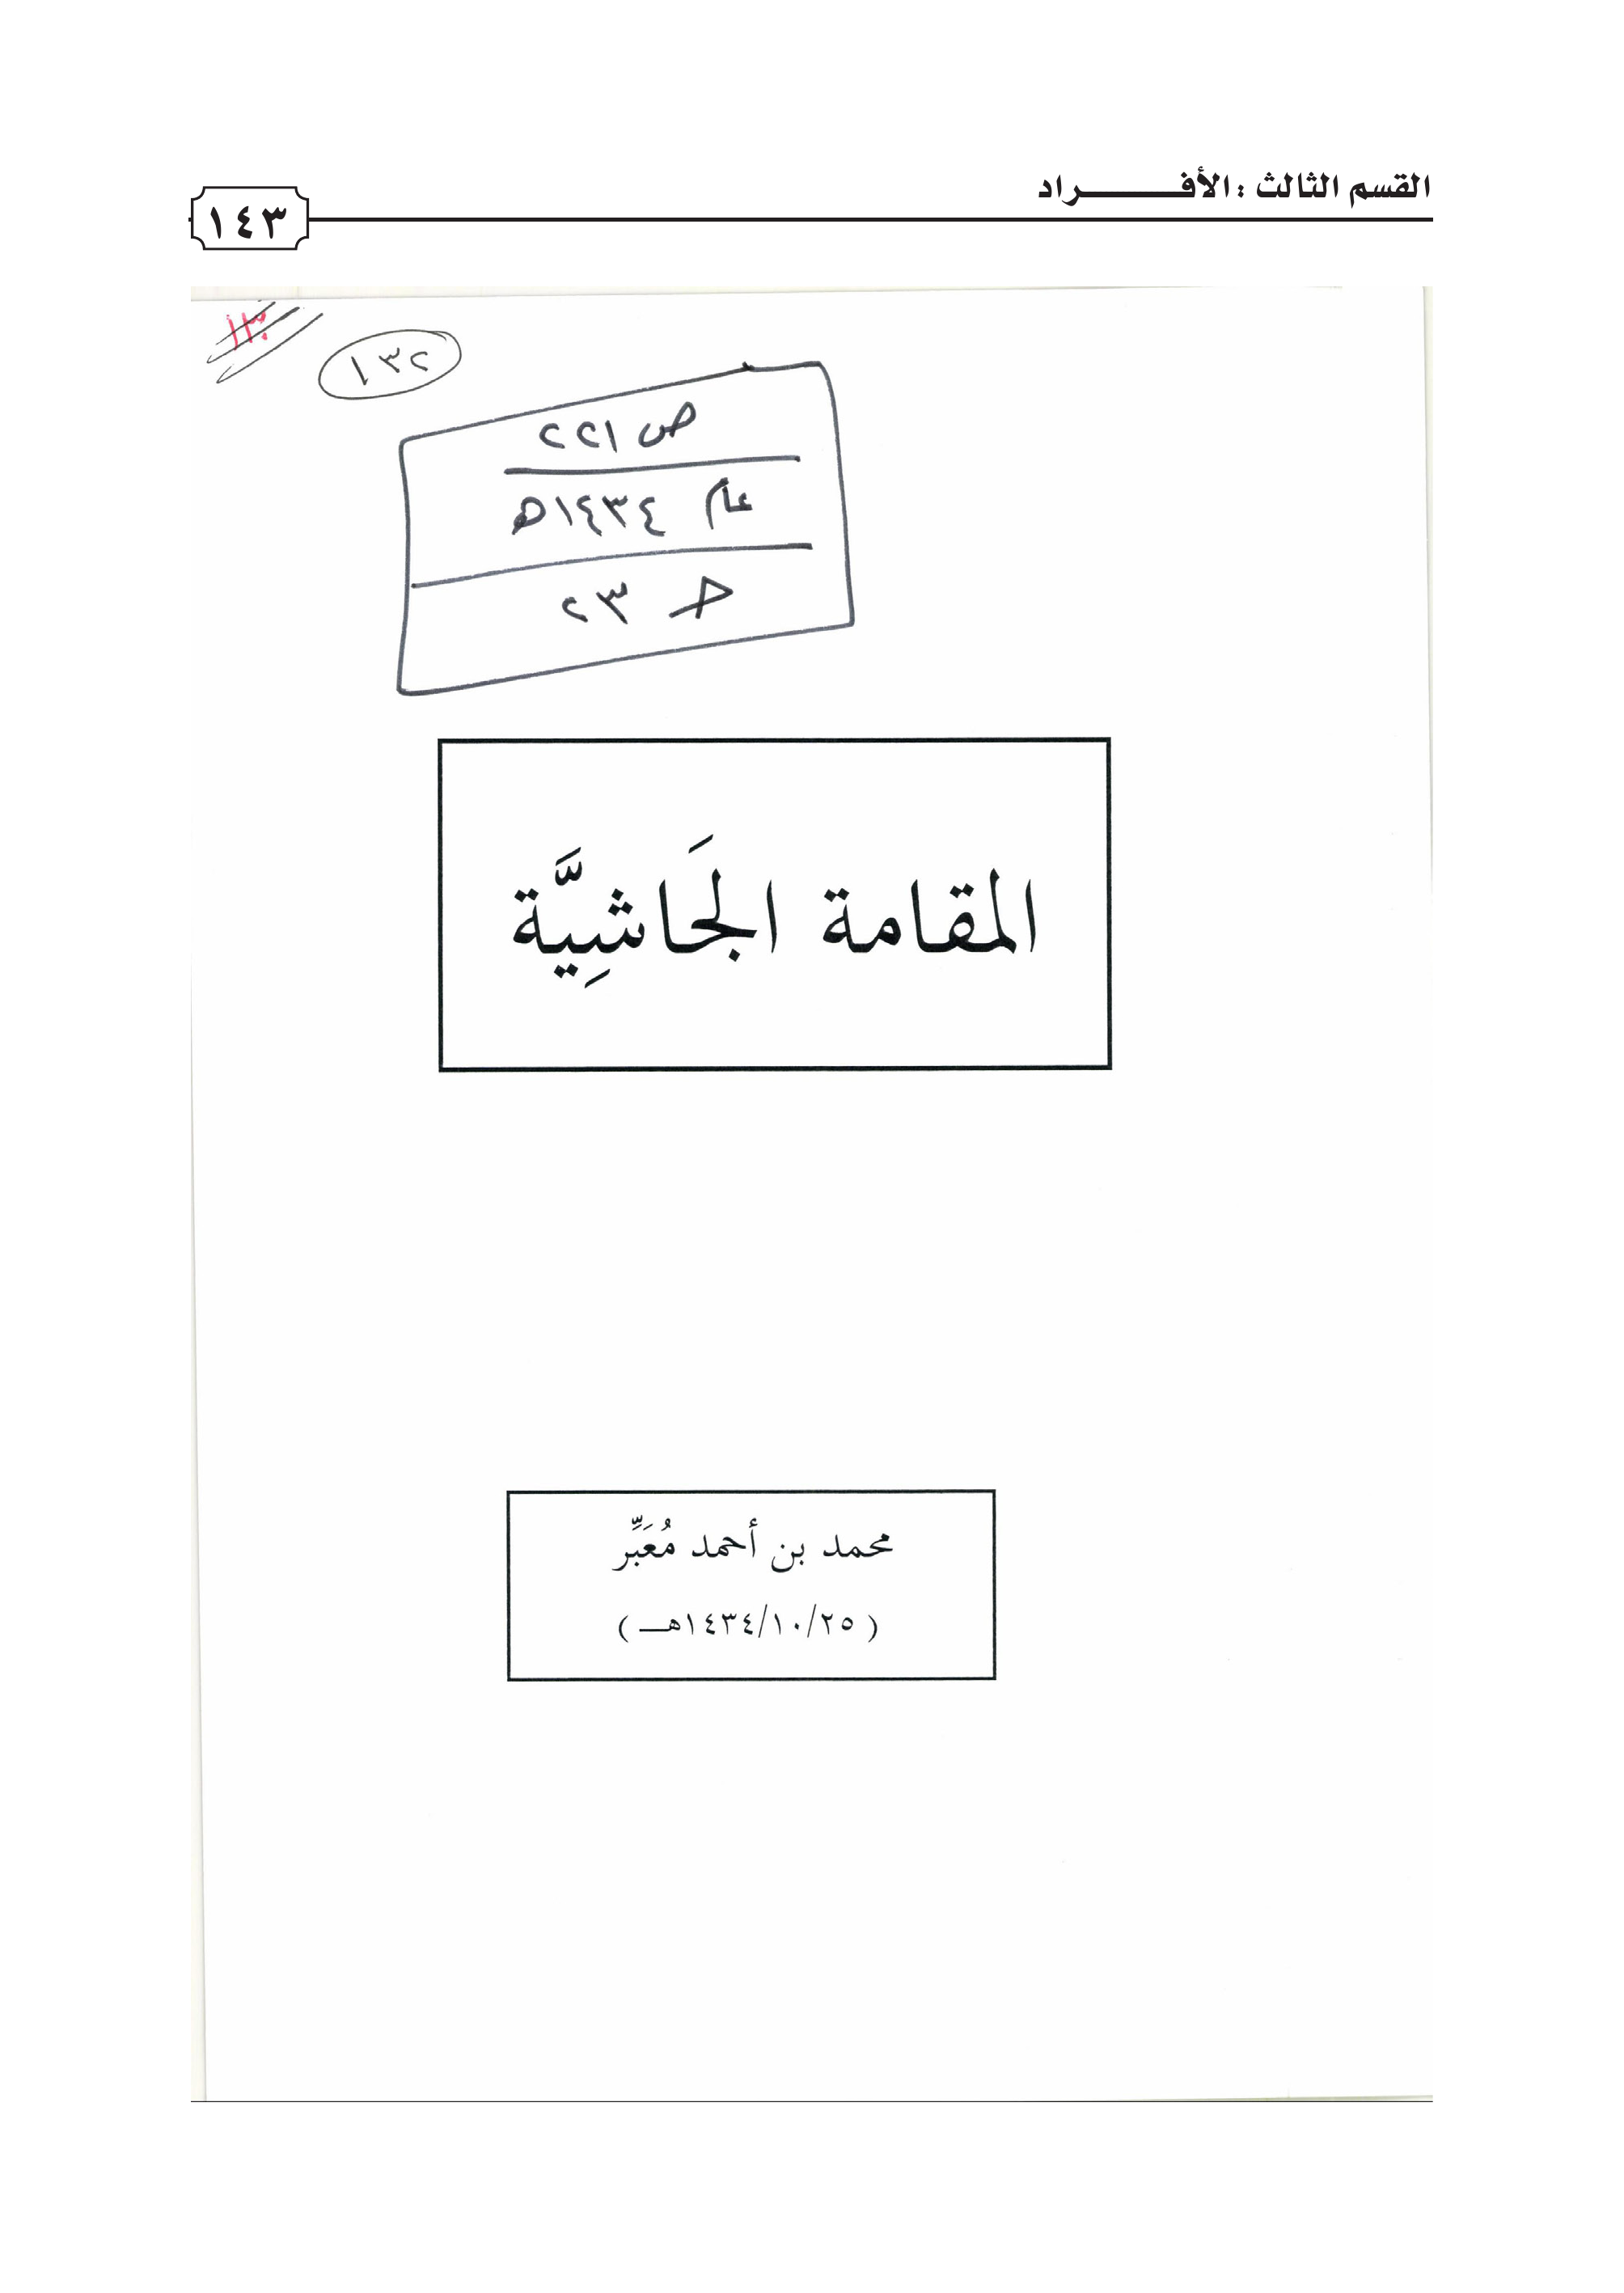 القسم الثالث : الأفـــــــراد
١٤٣
١٣٢
ص ٢٢١
عام ١٤٣٤هـ
٢٣
المقامة الجَاشِيَّة
محمد بن أحمد مُعَبِّر
(٢٥/١٠/١٤٣٤هـ)